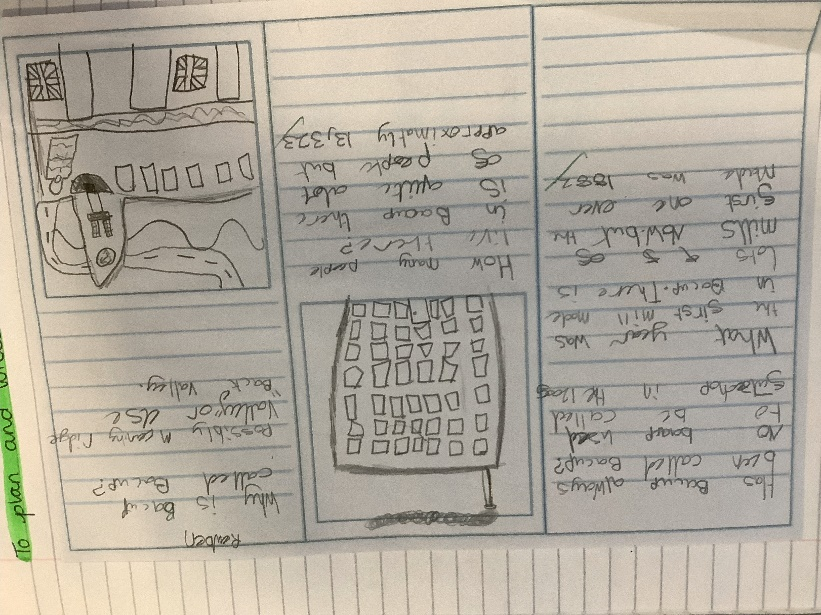 Has Bacup always
been called Bacup?
No bacup used
to be called
in the
What year was
the first mill made
in Bacup. There is
Lots of
mills Now.but the
first one ever
made was
How many people
live there?
in Bacup there
is quite alot
of people but
approximatly 13,323
Why is Bacup
called Bacup?
Possibly meaning Ridge
Valley or use
"Back valley.
To plan and